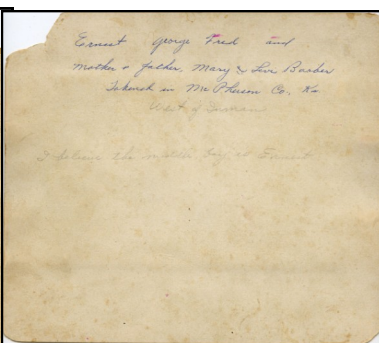 Ernest George Fred and
Mother & father, Mary & Barber
in McPherson Co. Ks
West of
I believe the boy is Ernest